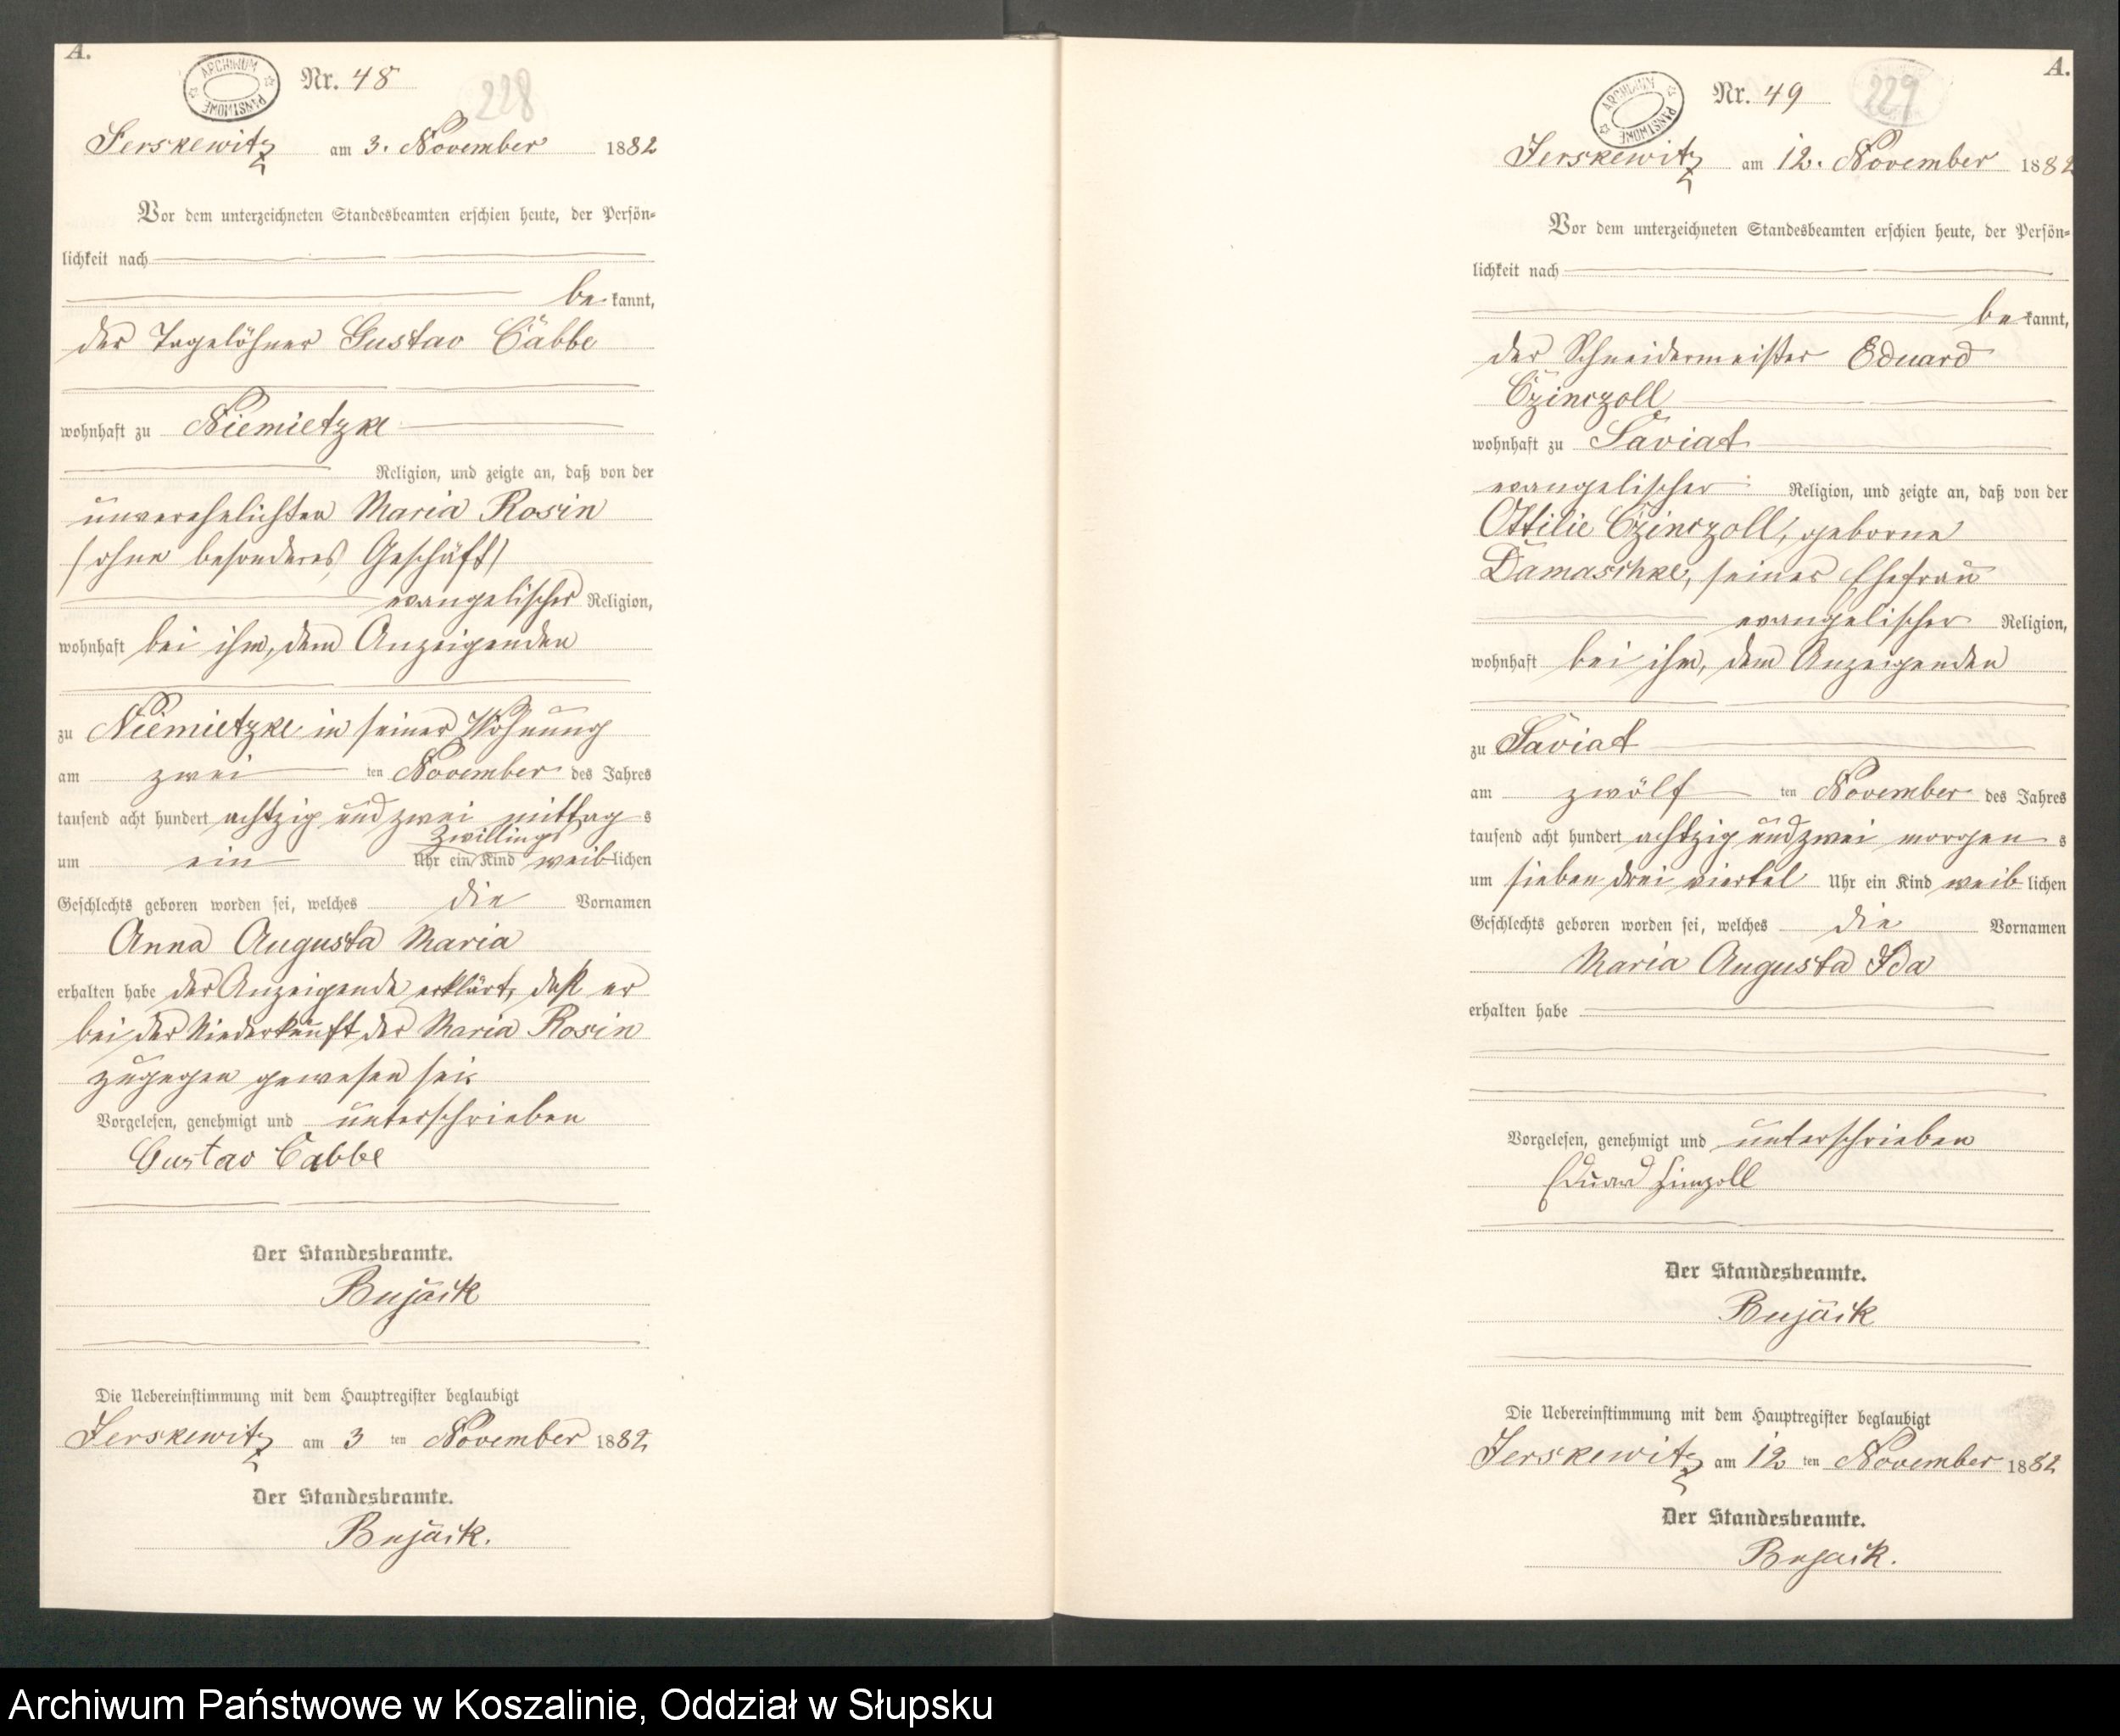 A.
ARCHIWUM PAŃSTWOWE
Nr. 48
228
Jerskewitz am 3. November 1882
Vor dem unterzeichneten Standesbeamten erschien heute, der Persön-
lichkeit nach
be kannt,
der Tagelöhner Gustav Cabbe
wohnhaft zu Niemietzke
Religion, und zeigte an, daß von der
unverehelichten Maria Rosin
(ohne besonderes Geschäft)
evangelischer Religion,
wohnhaft bei ihm, dem Anzeigenden
zu Niemietzke in seiner Wohnung
am zwei ten November des Jahres
tausend acht hundert achtzig und zwei mittag s
Zwillings
um ein Uhr ein Kind weib lichen
Geschlechts geboren worden sei, welches die Vornamen
Anna Augusta Maria
erhalten habe der Anzeigende erklärt, daß er
bei der Niederkunft der Maria Rosin
zugegen gewesen sei.
Vorgelesen, genehmigt und unterschrieben
Gustav Cabbe
Der Standesbeamte.
Bujack
Die Uebereinstimmung mit dem Hauptregister beglaubigt
Jerskewitz am 3 ten November 1882
Der Standesbeamte.
Bujack.
A.
ARCHIWUM PAŃSTWOWE
Nr. 49
229
Jerskewitz am 12. November 1882
Vor dem unterzeichneten Standesbeamten erschien heute, der Persön-
lichkeit nach
be kannt,
der Schneidermeister Eduard
Czinczoll
wohnhaft zu Saviat
evangelischer Religion, und zeigte an, daß von der
Ottilie Czinczoll, geborne
Damaschke, seiner Ehefrau
evangelischer Religion,
wohnhaft bei ihm, dem Anzeigenden
zu Saviat
am zwölf ten November des Jahres
tausend acht hundert achtzig und zwei morgen s
um sieben drei viertel Uhr ein Kind weib lichen
Geschlechts geboren worden sei, welches die Vornamen
Maria Augusta Ida
erhalten habe
Vorgelesen, genehmigt und unterschrieben
Eduard
Der Standesbeamte.
Bujack
Die Uebereinstimmung mit dem Hauptregister beglaubigt
Jerskewitz am 12 ten November 1882
Der Standesbeamte.
Bujack.
Archiwum Państwowe w Koszalinie, Oddział w Słupsku